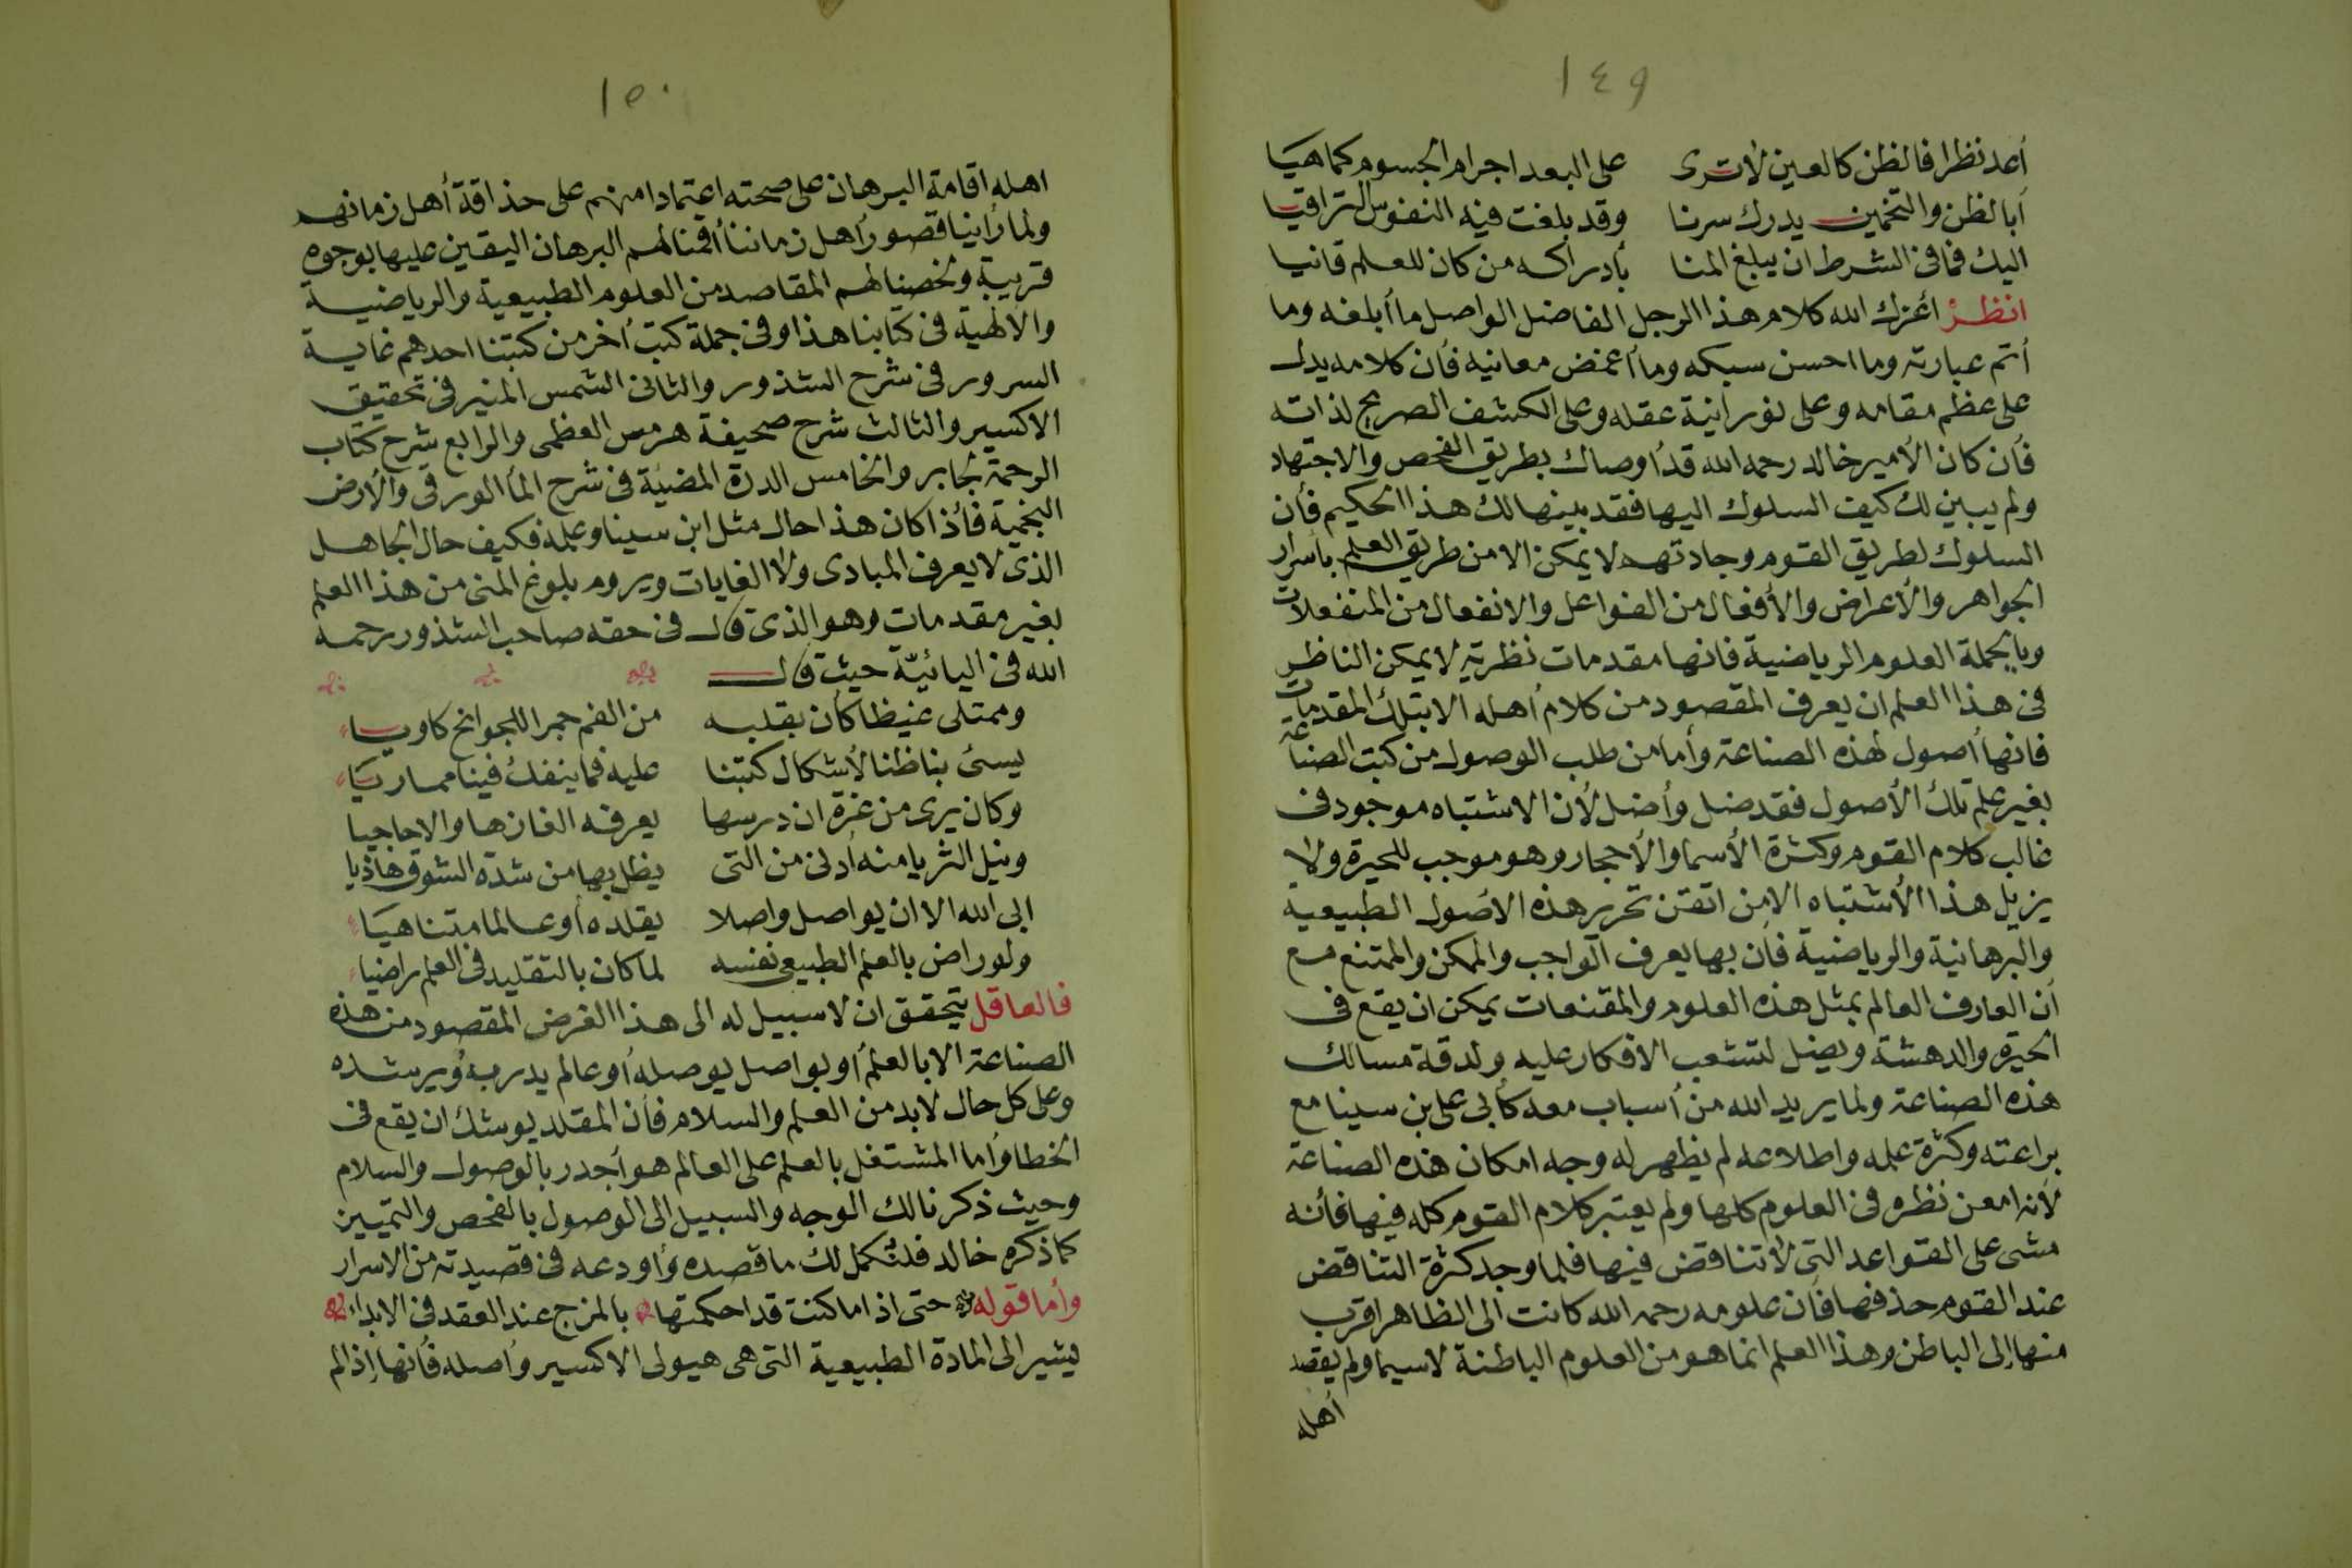 ١٤٩
أعد نظرا فالظن كالعين لا ترى على البعد اجرام الجسوم كما هيا
أبا لظن والتخمين يدرك سرنا وقد بلغت فيه النفوس التراقيا
اليك فما فى الشرط ان يبلغ المنا بأدراكه من كان للعلم قانيا
انظر أعزك الله كلام هذا الرجل الفاضل الواصل ما أبلغه وما
أتم عبارته وما احسن سبكه وما أغمض معانيه فأن كلامه يدل
على عظم مقامه وعلى نورانية عقله وعلى الكشف الصريح لذاته
فأن كان الأمير خالد رحمه الله قد أوصاك بطريق الفحص والاجتهاد
ولم يبين لك كيف السلوك اليها فقد بينها لك هذا الحكيم فأن
السلوك لطريق القوم وجادتهم لا يمكن الا من طريق العلم بأسرار
الجواهر والأعراض والأفعال من الفواعل والانفعال من المنفعلات
وبالجملة العلوم الرياضية فانها مقدمات نظرية لا يمكن الناظر
فى هذا العلم ان يعرف المقصود من كلام أهله الا بتلك المقدمات
فانها أصول لهذه الصناعة وأما من طلب الوصول من كتب الصناعة
بغير علم تلك الأصول فقد ضل وأضل لأن الاشتباه موجود فى
غالب كلام القوم وكثرة الأسما والأحجار وهو موجب للحيرة ولا
يزيل هذا الأشتباه الا من اتقن تحرير هذه الاصول الطبيعية
والبرهانية والرياضية فأن بها يعرف الواجب والممكن والممتنع مع
أن العارف العالم بمثل هذه العلوم والمقنعات يمكن ان يقع فى
الحيرة والدهشة ويضل لتشعب الافكار عليه ولدقة مسالك
هذه الصناعة ولما يريد الله من أسباب معه كأبى على بن سينا مع
براعته وكثرة علمه واطلاعه لم يظهر له وجه امكان هذه الصناعة
لأنه امعن نظره فى العلوم كلها ولم يعتبر كلام القوم كله فيها فأنه
مشى على القواعد التى لا تناقض فيها فلما وجد كثرة التناقض
عند القوم حذفها فأن علومه رحمه الله كانت الى الظاهر اقرب
منها إلى الباطن وهذا العلم انما هو من العلوم الباطنة لا سيما ولم يقصد
أهله
١٥٠
اهله اقامة البرهان على صحته اعتمادا منهم على حذاقة أهل زمانهم
ولما رأينا قصور أهل زماننا أقمنا لهم البرهان اليقين عليها بوجوه
قريبة ولخصنا لهم المقاصد من العلوم الطبيعية والرياضية
والالهية فى كتابنا هذا وفى جملة كتب أخر من كتبنا احدهم غاية
السرور فى شرح الشذور والثانى الشمس المنير فى تحقيق
الاكسير والثالث شرح صحيفة هرمس العظمى والرابع شرح كتاب
الرحمة لجابر والخامس الدرة المضيئة فى شرح الما الورقى والأرض
النجمية فأذا كان هذا حال مثل ابن سينا وعلمه فكيف حال الجاهل
الذى لا يعرف المبادى ولا الغايات ويروم بلوغ المنى من هذا العلم
بغير مقدمات وهو الذى قال فى حقه صاحب الشذور رحمه
الله فى اليائية حيث قال
وممتلى غيظا كأن بقلبه من الفم جمرا للجوانح كاويا
يسئ بنا ظنا لأشكال كتبنا عليه فما ينفك فينا مماريا
وكان يرى من غرة ان درسها يعرفه الغازها والاحاجيا
ونيل الثريا منه أدنى من التى يظل بها من شدة الشوق هاذيا
ابى الله الا ان يواصل واصلا يقلده أو عالما متناهيا
ولو راض بالعلم الطبيعى نفسه لما كان بالتقليد فى العلم راضيا
فالعاقل يتحقق ان لا سبيل له الى هذا الغرض المقصود من هذه
الصناعة الا بالعلم أو بواصل يوصله أو عالم يدربه ويرشده
وعلى كل حال لا بد من العلم والسلام فأن المقلد يوشك ان يقع فى
الخطا وأما المشتغل بالعلم على العالم هو أجدر بالوصول والسلام
وحيث ذكرنا لك الوجه والسبيل الى الوصول بالفحص والتمييز
كما ذكره خالد فلنكمل لك ما قصده وأودعه فى قصيدته من الاسرار
وأما قوله حتى اذا ما كنت قد احكمتها بالمزج عند العقد فى الابداء
يشير الى المادة الطبيعية التى هى هيولى الاكسير وأصله فأنها إذا لم